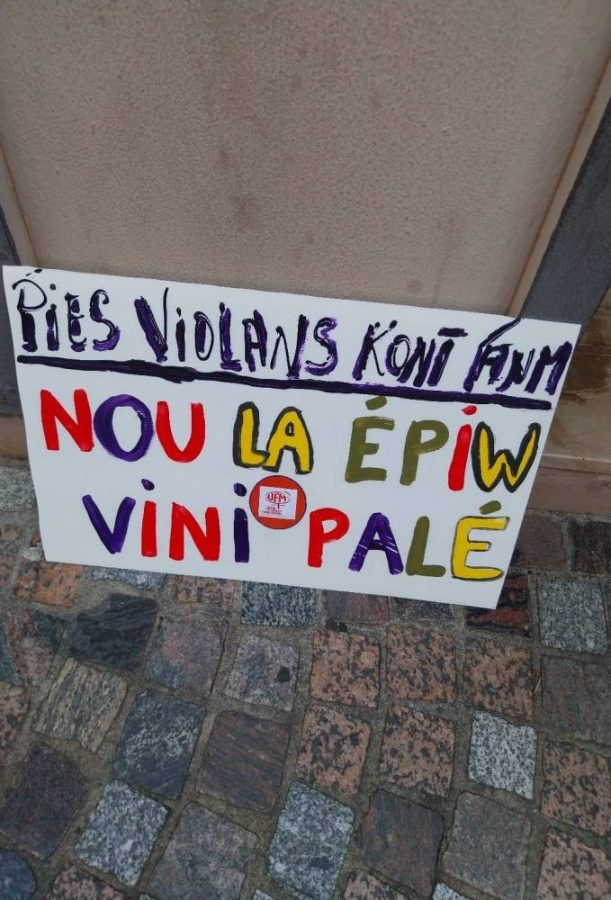 PIES VIOLANS KONT FANM
NOU LA ÉPIW
VINI PALÉ
UFM